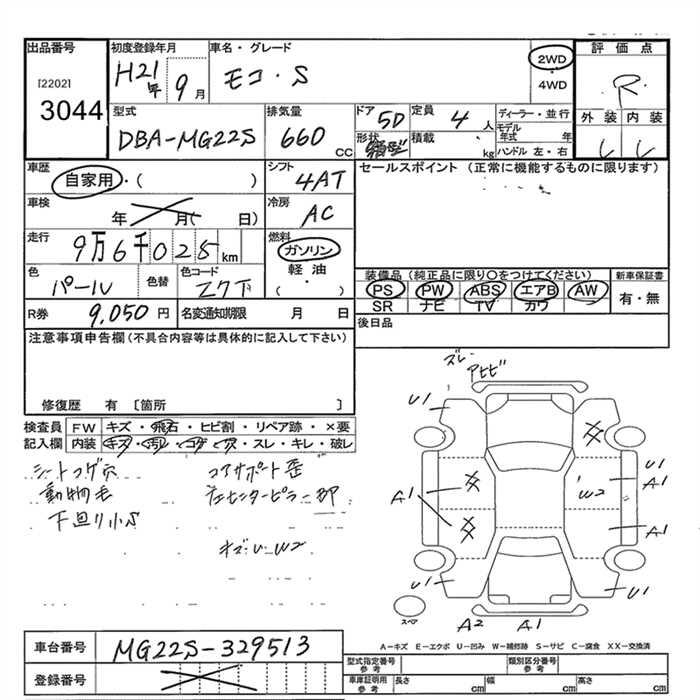 出品番号
[2202]
3044
初度登録年月
H21年 9月
車名・グレード
モコ・S
2WD
・
4WD
評価点
R
型式
DBA-MG22S
排気量
660 CC
ドア 5D
定員 4人
形状 箱型
積載 kg
ディーラー・並行
モデル年式 年
ハンドル 左・右
外装 内装
車歴
自家用・( )
シフト
4AT
セールスポイント (正常に機能するものに限ります)
車検
年 月( 日)
冷房
AC
走行
9万6千025km
燃料
ガソリン
軽油
( )
色
パール
色替
色コード
Z7T
装備品 (純正品に限り○をつけてください)
PS PW ABS エアB AW
SR ナビ TV カワ
新車保証書
有・無
R券 9,050円
名変通知期限 月 日
後日品
注意事項申告欄 (不具合内容等は具体的に記入して下さい)
修復歴 有 [箇所 ]
検査員記入欄
FW キズ・飛石・ヒビ割・リペア跡・×要
内装 キズ・汚レ・コゲ・穴・スレ・キレ・破レ
シートコゲ穴
動物毛
下廻り小S
コアサポート歪
左センターピラー部
W2
ズレ
アヒビ
U1
U1
U1
A1
A1
W2
U1
A1
A1
U1
A2 A1
スペア
A-キズ E-エクボ U-凹み W-補修跡 S-サビ C-腐食 XX-交換済
車台番号 MG22S-329513
登録番号
型式指定番号 参考
類別区分番号 参考
車庫証明用 参考
長さ cm
幅 cm
高さ cm